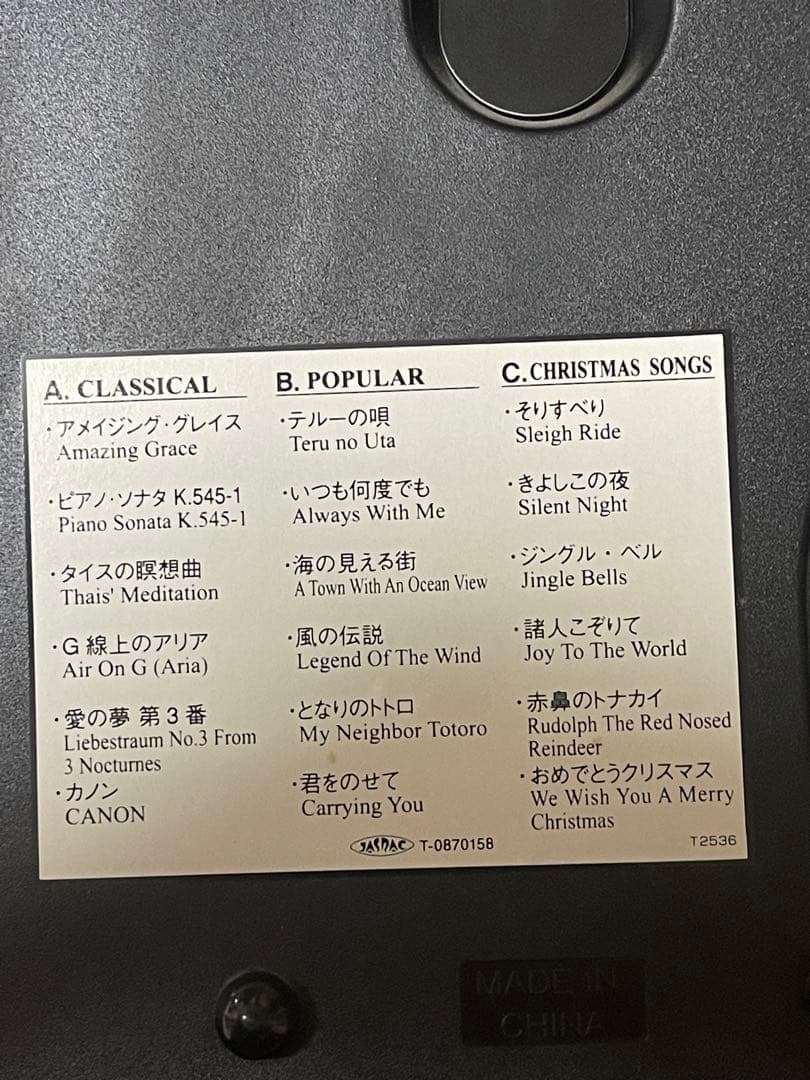 A. CLASSICAL
・アメイジング・グレイス
Amazing Grace
・ピアノ・ソナタ K.545-1
Piano Sonata K.545-1
・タイスの瞑想曲
Thais' Meditation
・G 線上のアリア
Air On G (Aria)
・愛の夢 第3番
Liebestraum No.3 From
3 Nocturnes
・カノン
CANON
B. POPULAR
・テルーの唄
Teru no Uta
・いつも何度でも
Always With Me
・海の見える街
A Town With An Ocean View
・風の伝説
Legend Of The Wind
・となりのトトロ
My Neighbor Totoro
・君をのせて
Carrying You
C. CHRISTMAS SONGS
・そりすべり
Sleigh Ride
・きよしこの夜
Silent Night
・ジングル・ベル
Jingle Bells
・諸人こぞりて
Joy To The World
・赤鼻のトナカイ
Rudolph The Red Nosed
Reindeer
・おめでとうクリスマス
We Wish You A Merry
Christmas
JASRAC T-0870158
T2536
MADE IN
CHINA